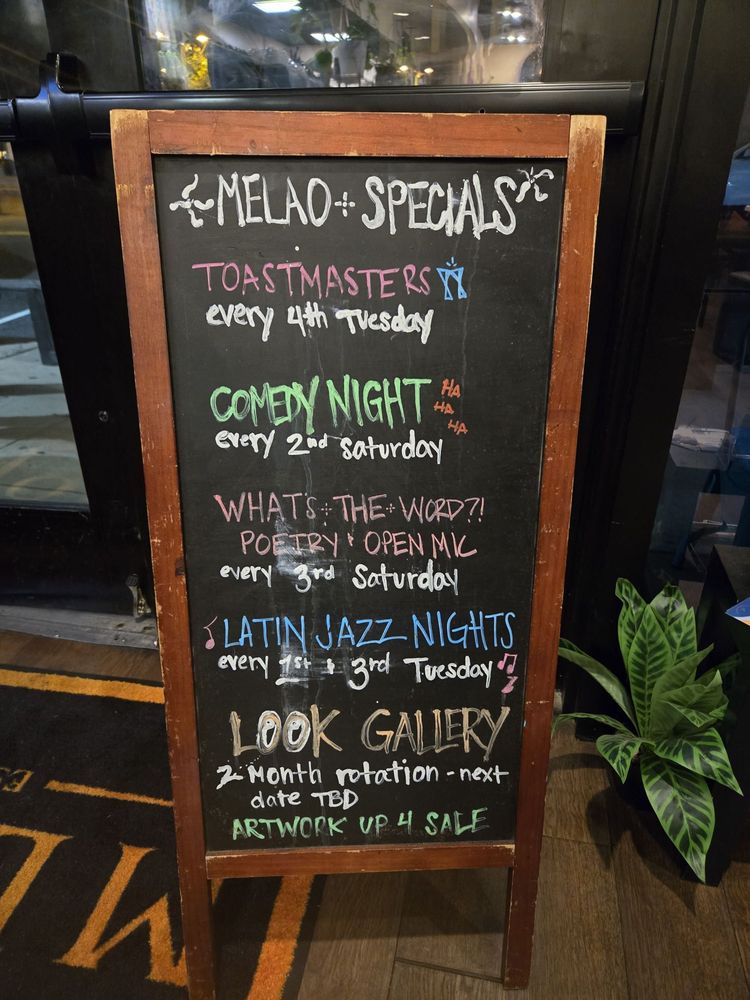 MELAO + SPECIALS
TOASTMASTERS
every 4th Tuesday
COMEDY NIGHT HA
HA
HA
every 2nd Saturday
WHAT'S + THE + WORD?!
POETRY + OPEN MIC
every 3rd Saturday
LATIN JAZZ NIGHTS
every 1st + 3rd Tuesday
LOOK GALLERY
2 Month rotation - next
date TBD
ARTWORK UP 4 SALE